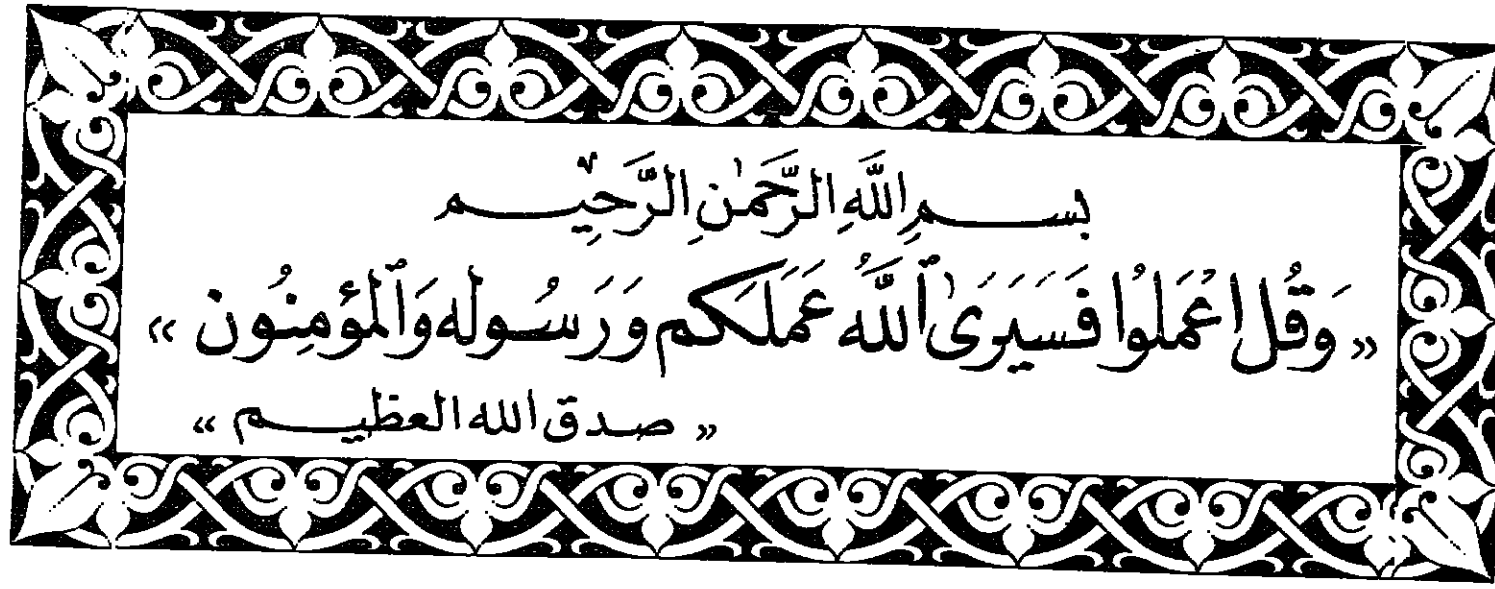 بســـمِ اللَّهِ الرَّحمٰنِ الرَّحِيـــم
« وَقُل اعْمَلُوا فَسَيَرَىٰ ٱللَّهُ عَمَلَكُم وَرَسُـولُه وَٱلْمُؤمِنُون »
« صـدق الله العظيـــم »